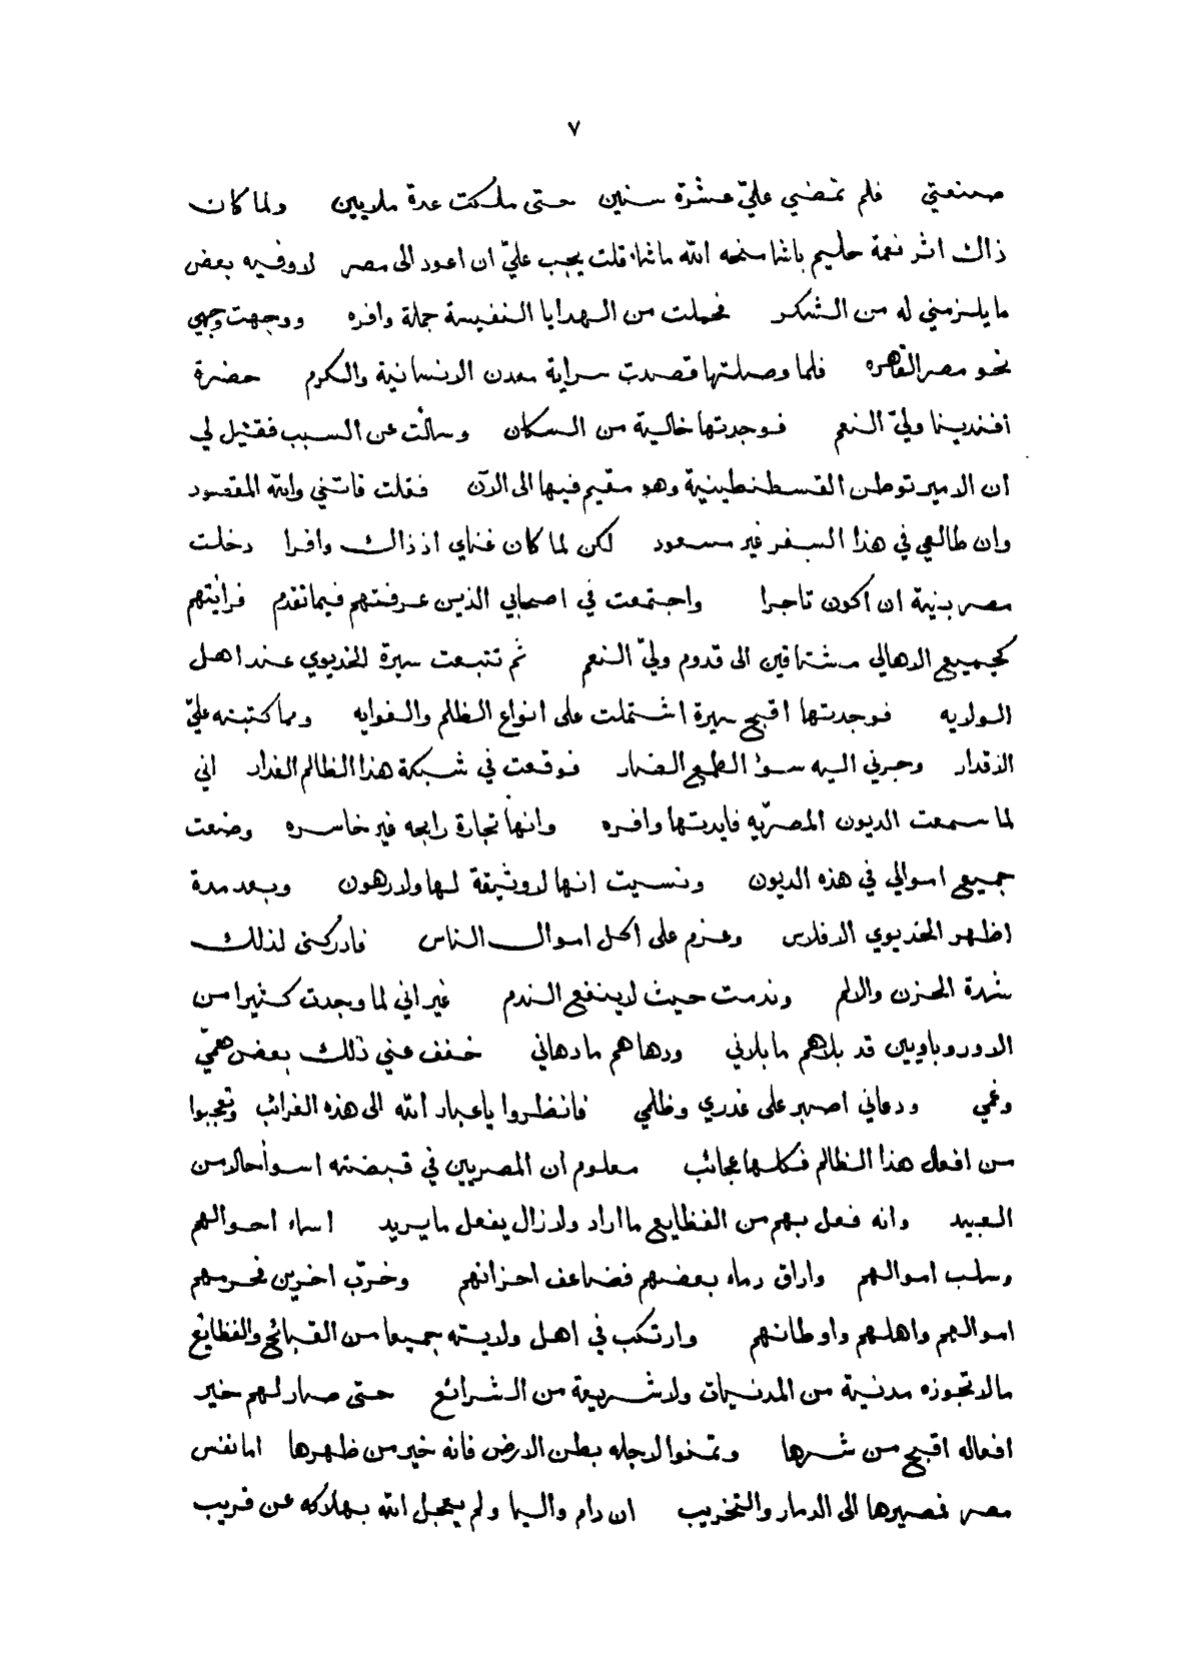 ٧
صنعتي فلم تمضي عليّ عشرة سنين حتى ملكت عدة ملايين ولما كان
ذاك اثر نعمة حليم باشا منحه الله ماشا، قلت يجب عليّ ان اعود الى مصر لاوفيه بعض
ما يلزمني له من الشكر فحملت من الهدايا النفيسة جملة وافره ووجهت وجهي
نحو مصر القاهره فلما وصلتها قصدت سراية معدن الانسانية والكرم حضرة
افندينا وليّ النعم فوجدتها خالية من السكان وسالت عن السبب فقيل لي
ان الامير توطن القسطنطينية وهو مقيم فيها الى الآن فقلت فاتني والله المقصود
وان طالعي في هذا السفر غير مسعود لكن لما كان غناي اذ ذاك وافرا دخلت
مصر بنية ان اكون تاجرا واجتمعت في اصحابي الذين عرفتهم فيما تقدم فرائتهم
كجميع الاهالي مشتاقين الى قدوم وليّ النعم ثم تتبعت سيرة الخديوي عند اهل
الولايه فوجدتها اقبح سيرة اشتملت على انواع الظلم والغوايه ومما كتبته عليّ
الاقدار وجرني اليه سوء الطمع الضار فوقعت في شبكة هذا الظالم الغدار اني
لما سمعت الديون المصريّه فايدتها وافره وانها تجارة رابحه غير خاسره وضعت
جميع اموالي في هذه الديون ونسيت انها لا وثيقة لها ولا رهون وبعد مدة
اظهر الخديوي الافلاس وعزم على اكل اموال الناس فادركنى لذلك
شدة الحزن والالم وندمت حيث لا ينفع الندم غير اني لما وجدت كثيرا من
الاوروباويين قد بلاهم ما بلاني ودهاهم ما دهاني خفف عني ذلك بعض همّي
وغمي ودعاني اصبر على غدري وظلمي فانظروا يا عباد الله الى هذه الغرائب وتعجبوا
من افعال هذا الظالم فكلها عجائب معلوم ان المصريين في قبضته اسوأ حالا من
العبيد وانه فعل بهم من الفظايع ما اراد ولا زال يفعل ما يريد اساء احوالهم
وسلب اموالهم واراق دماء بعضهم فضاعف احزانهم وخرّب اخرين فحرمهم
اموالهم واهلهم واوطانهم وارتكب في اهل ولايته جميعا من القبائح والفظائع
مالا تجوزه مدنية من المدنيات ولا شريعة من الشرائع حتى صار لهم خير
افعاله اقبح من شرها وتمنوا لاجله بطن الارض فانه خير من ظهرها اما نفس
مصر فمصيرها الى الدمار والتخريب ان دام واليا ولم يعجل الله بهلاكه عن قريب